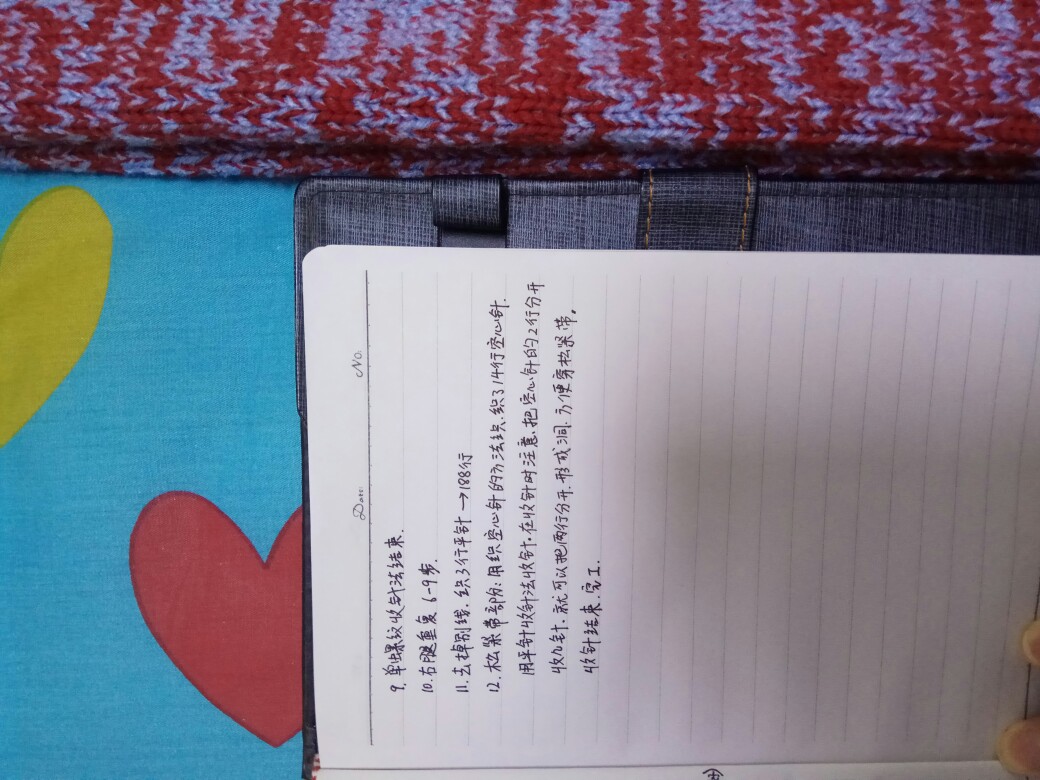 No.
Date:
9. 单螺纹收针法结束.
10. 右腿重复6-9步.
11. 去掉别线. 织3行平针→188行
12. 松紧带部份: 用织空心针的方法织. 织了14行空心针.
用平针收针法收针. 在收针时注意. 把空心针的2行分开
收几针. 就可以把两行分开. 形成洞. 方便穿松紧带。
收针结束. 完工.